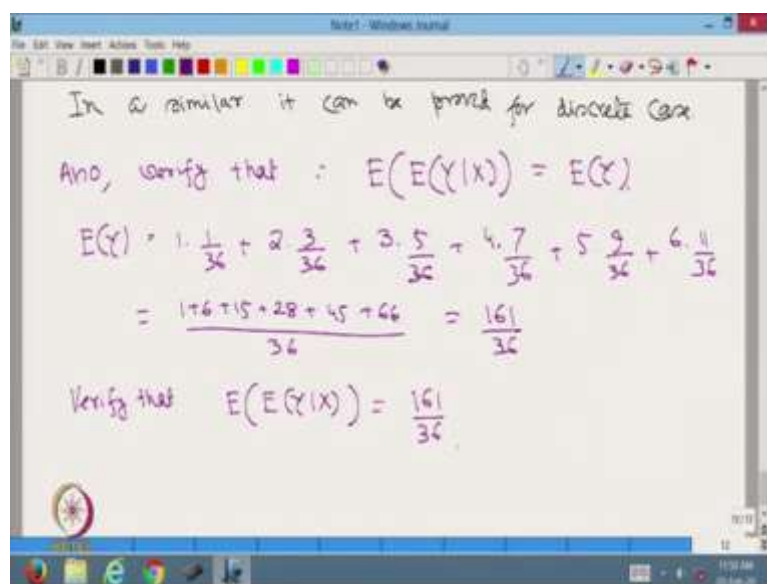 Note1 - Windows Journal
File Edit View Insert Actions Tools Help
In a similar it can be proved for discrete case
Also, verify that : E(E(Y|X)) = E(Y).
E(Y) = 1. 1/36 + 2. 3/36 + 3. 5/36 + 4. 7/36 + 5 9/36 + 6. 11/36
= 1+6+15+28+45+66/36 = 161/36
Verify that E(E(Y|X)) = 161/36.